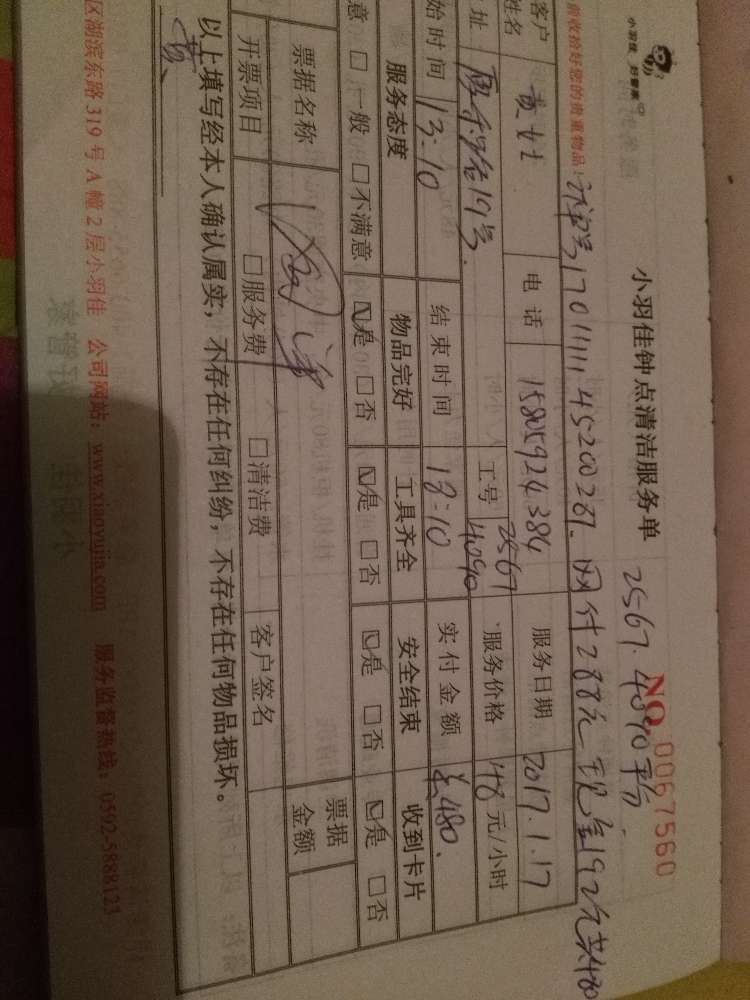 小羽佳 好管家
小羽佳钟点清洁服务单
NO 0067560
2567.4090平分
前收拾好您的贵重物品!
1701111145200287. 网付288元 现金192元共480
客户姓名 黄女士 电话 15805924384 服务日期 2017.1.17
址 19号. 工号 2567 4090 服务价格 48 元/小时
始时间 13:10 结束时间 18:10 实付金额 ¥480.
服务态度 物品完好 工具齐全 安全结束 收到卡片
意 □一般 □不满意 ☑是 □否 ☑是 □否 ☑是 □否 ☑是 □否
票据名称 票据金额
开票项目 □服务费 □清洁费 客户签名
以上填写经本人确认属实，不存在任何纠纷，不存在任何物品损坏。
区湖滨东路319号A幢2层小羽佳 公司网站：www.xiaoyujia.com 服务监督热线：0592-5888123